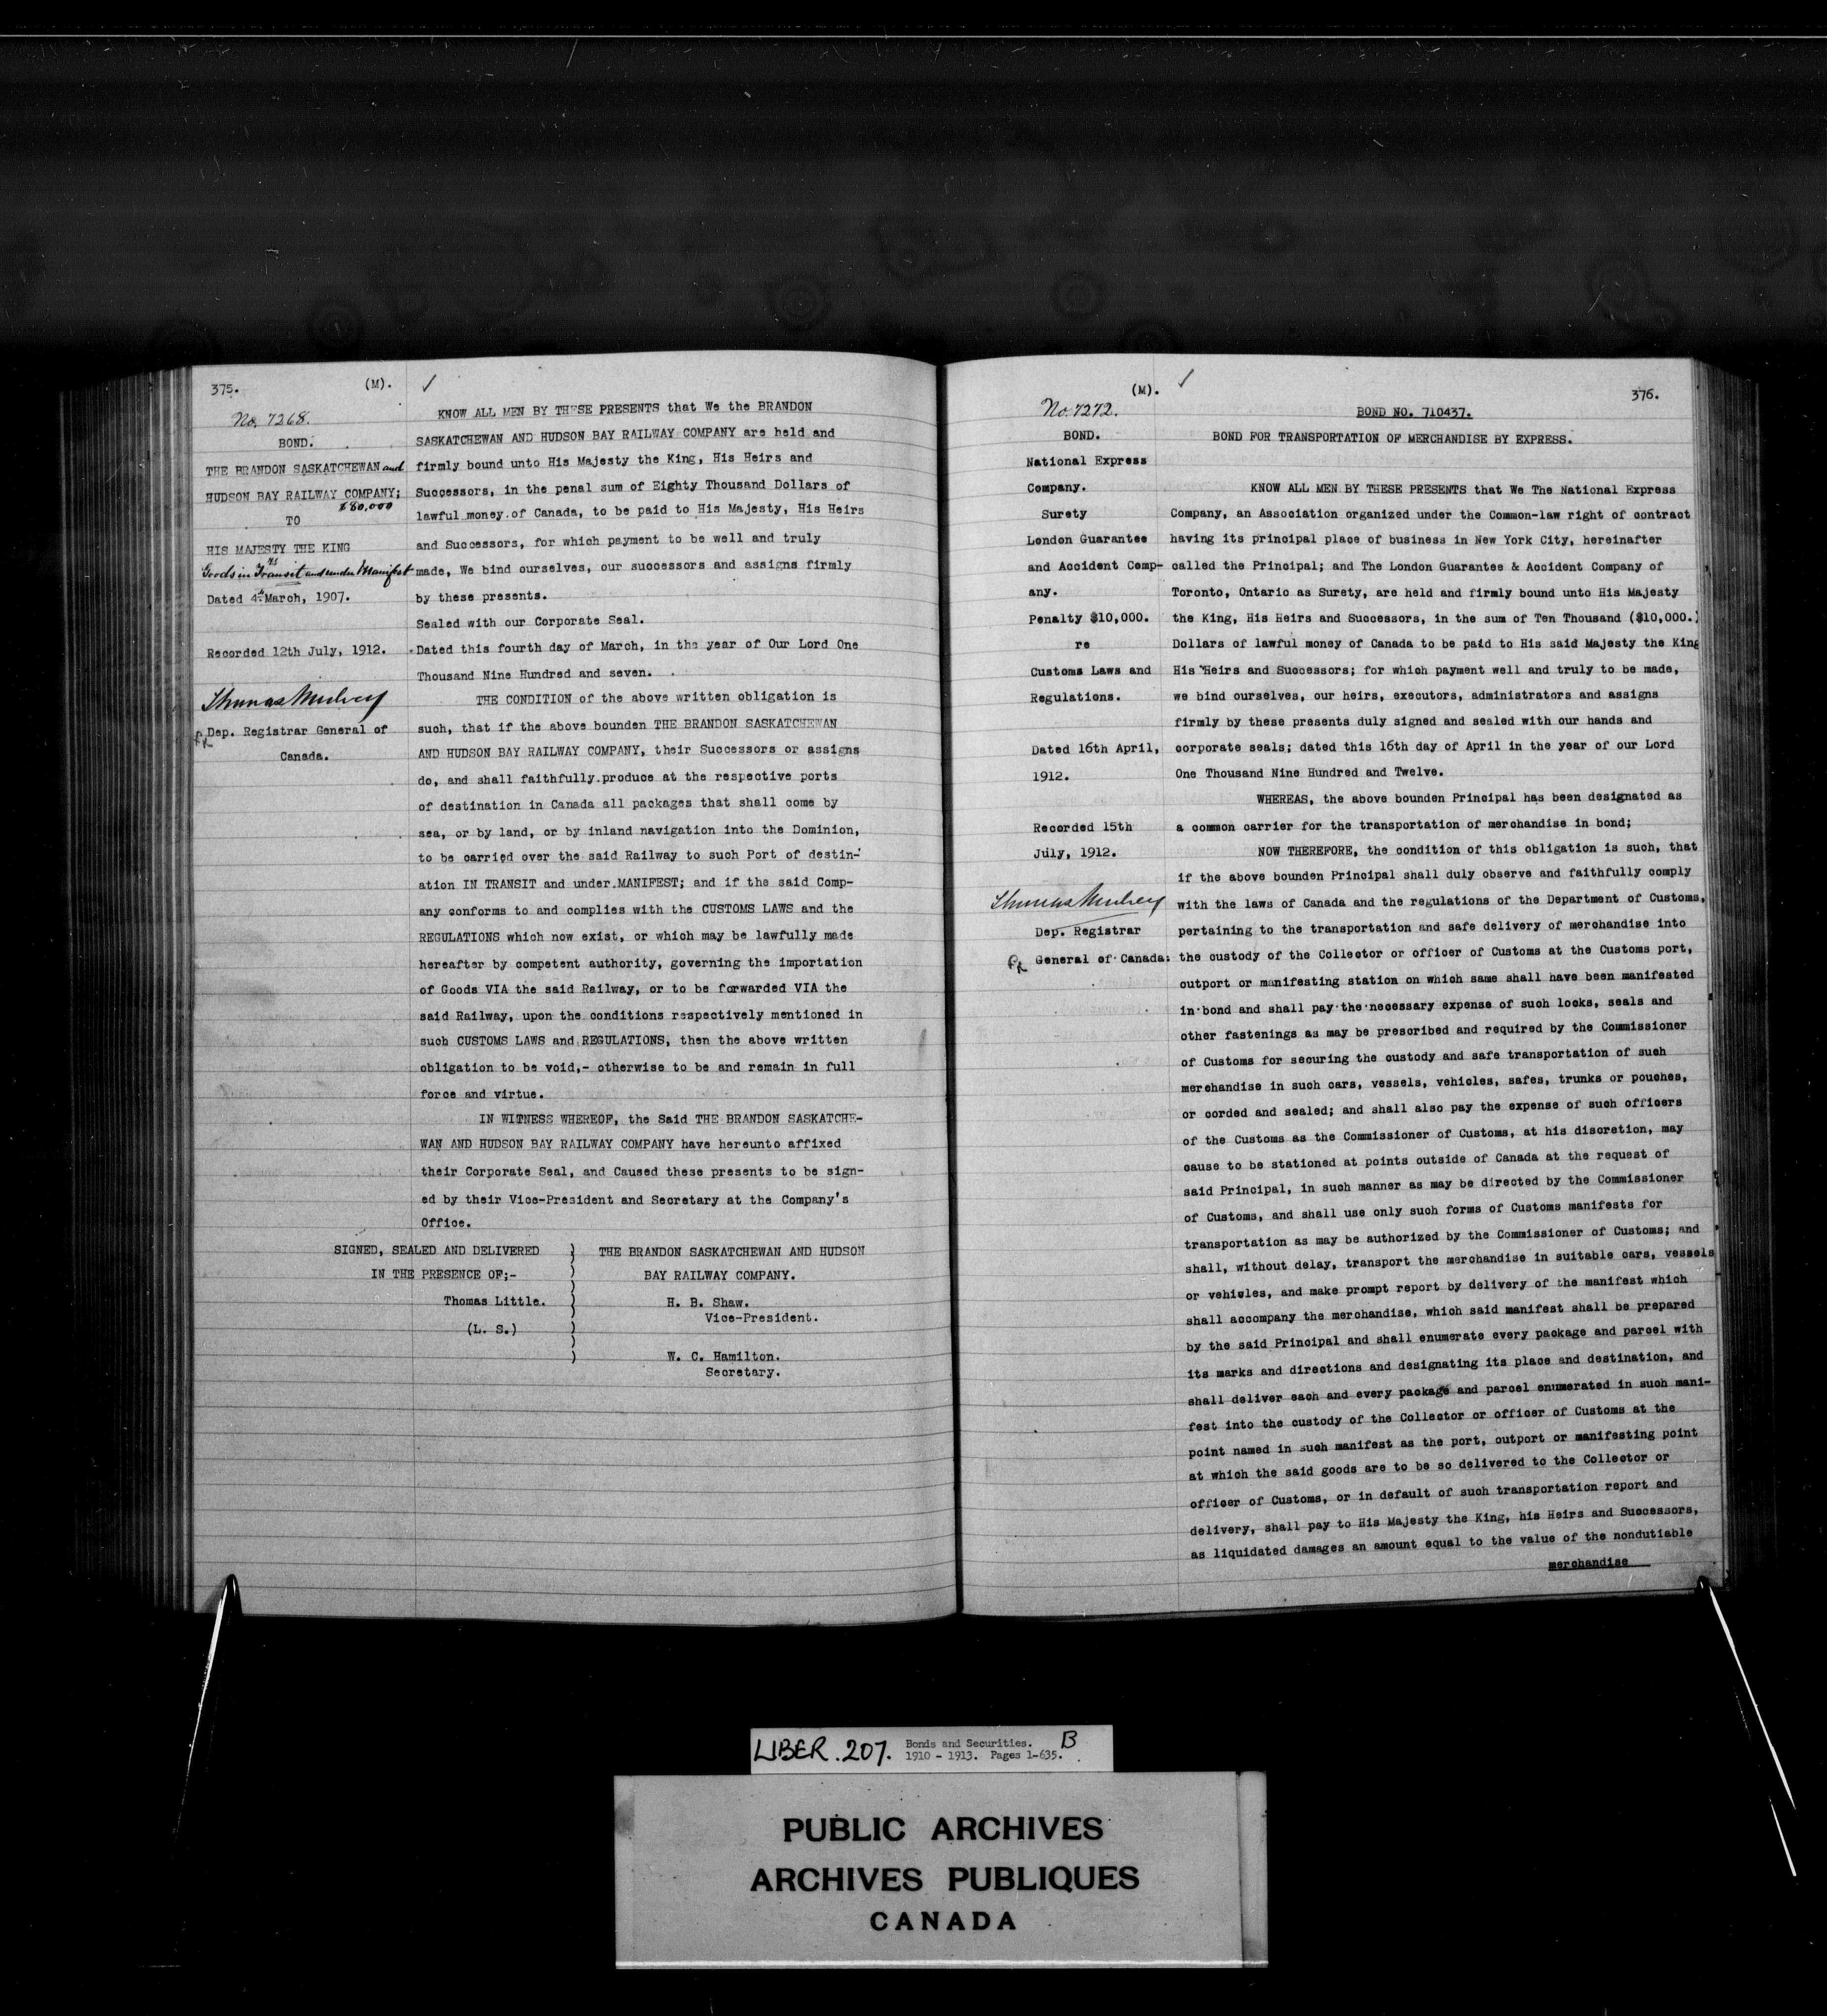 375.
(M).
No. 7268.
BOND.
THE BRANDON SASKATCHEWAN and
HUDSON BAY RAILWAY COMPANY;
$80,000
TO
HIS MAJESTY THE KING
re
Goods in Transit and under Manifest
Dated 4th March, 1907.
Recorded 12th July, 1912.
Thomas Mulvey
Dep. Registrar General of
Canada.
KNOW ALL MEN BY THESE PRESENTS that We the BRANDON
SASKATCHEWAN AND HUDSON BAY RAILWAY COMPANY are held and
firmly bound unto His Majesty the King, His Heirs and
Successors, in the penal sum of Eighty Thousand Dollars of
lawful money of Canada, to be paid to His Majesty, His Heirs
and Successors, for which payment to be well and truly
made, We bind ourselves, our successors and assigns firmly
by these presents.
Sealed with our Corporate Seal.
Dated this fourth day of March, in the year of Our Lord One
Thousand Nine Hundred and seven.
THE CONDITION of the above written obligation is
such, that if the above bounden THE BRANDON SASKATCHEWAN
AND HUDSON BAY RAILWAY COMPANY, their Successors or assigns
do, and shall faithfully produce at the respective ports
of destination in Canada all packages that shall come by
sea, or by land, or by inland navigation into the Dominion,
to be carried over the said Railway to such Port of destin-
ation IN TRANSIT and under MANIFEST; and if the said Comp-
any conforms to and complies with the CUSTOMS LAWS and the
REGULATIONS which now exist, or which may be lawfully made
hereafter by competent authority, governing the importation
of Goods VIA the said Railway, or to be forwarded VIA the
said Railway, upon the conditions respectively mentioned in
such CUSTOMS LAWS and REGULATIONS, then the above written
obligation to be void,- otherwise to be and remain in full
force and virtue.
IN WITNESS WHEREOF, the Said THE BRANDON SASKATCHE-
WAN AND HUDSON BAY RAILWAY COMPANY have hereunto affixed
their Corporate Seal, and Caused these presents to be sign-
ed by their Vice-President and Secretary at the Company's
Office.
SIGNED, SEALED AND DELIVERED
IN THE PRESENCE OF;-
Thomas Little.
(L. S.)
THE BRANDON SASKATCHEWAN AND HUDSON
BAY RAILWAY COMPANY.
H. B. Shaw.
Vice-President.
W. C. Hamilton.
Secretary.
(M).
376.
No. 7272.
BOND.
National Express
Company.
Surety
London Guarantee
and Accident Comp-
any.
Penalty $10,000.
re
Customs Laws and
Regulations.
Dated 16th April,
1912.
Recorded 15th
July, 1912.
Thomas Mulvey
Dep. Registrar
General of Canada:
BOND NO. 710437.
BOND FOR TRANSPORTATION OF MERCHANDISE BY EXPRESS.
KNOW ALL MEN BY THESE PRESENTS that We The National Express
Company, an Association organized under the Common-law right of contract
having its principal place of business in New York City, hereinafter
called the Principal; and The London Guarantee & Accident Company of
Toronto, Ontario as Surety, are held and firmly bound unto His Majesty
the King, His Heirs and Successors, in the sum of Ten Thousand ($10,000.)
Dollars of lawful money of Canada to be paid to His said Majesty the King
His Heirs and Successors; for which payment well and truly to be made,
we bind ourselves, our heirs, executors, administrators and assigns
firmly by these presents duly signed and sealed with our hands and
corporate seals; dated this 16th day of April in the year of our Lord
One Thousand Nine Hundred and Twelve.
WHEREAS, the above bounden Principal has been designated as
a common carrier for the transportation of merchandise in bond;
NOW THEREFORE, the condition of this obligation is such, that
if the above bounden Principal shall duly observe and faithfully comply
with the laws of Canada and the regulations of the Department of Customs,
pertaining to the transportation and safe delivery of merchandise into
the custody of the Collector or officer of Customs at the Customs port,
outport or manifesting station on which same shall have been manifested
in bond and shall pay the necessary expense of such locks, seals and
other fastenings as may be prescribed and required by the Commissioner
of Customs for securing the custody and safe transportation of such
merchandise in such cars, vessels, vehicles, safes, trunks or pouches,
or corded and sealed; and shall also pay the expense of such officers
of the Customs as the Commissioner of Customs, at his discretion, may
cause to be stationed at points outside of Canada at the request of
said Principal, in such manner as may be directed by the Commissioner
of Customs, and shall use only such forms of Customs manifests for
transportation as may be authorized by the Commissioner of Customs; and
shall, without delay, transport the merchandise in suitable cars, vessels
or vehicles, and make prompt report by delivery of the manifest which
shall accompany the merchandise, which said manifest shall be prepared
by the said Principal and shall enumerate every package and parcel with
its marks and directions and designating its place and destination, and
shall deliver each and every package and parcel enumerated in such mani-
fest into the custody of the Collector or officer of Customs at the
point named in such manifest as the port, outport or manifesting point
at which the said goods are to be so delivered to the Collector or
officer of Customs, or in default of such transportation report and
delivery, shall pay to His Majesty the King, his Heirs and Successors,
as liquidated damages an amount equal to the value of the nondutiable
merchandise
LIBER. 207.
Bonds and Securities.
1910 - 1913. Pages 1-635.
B
PUBLIC ARCHIVES
ARCHIVES PUBLIQUES
CANADA